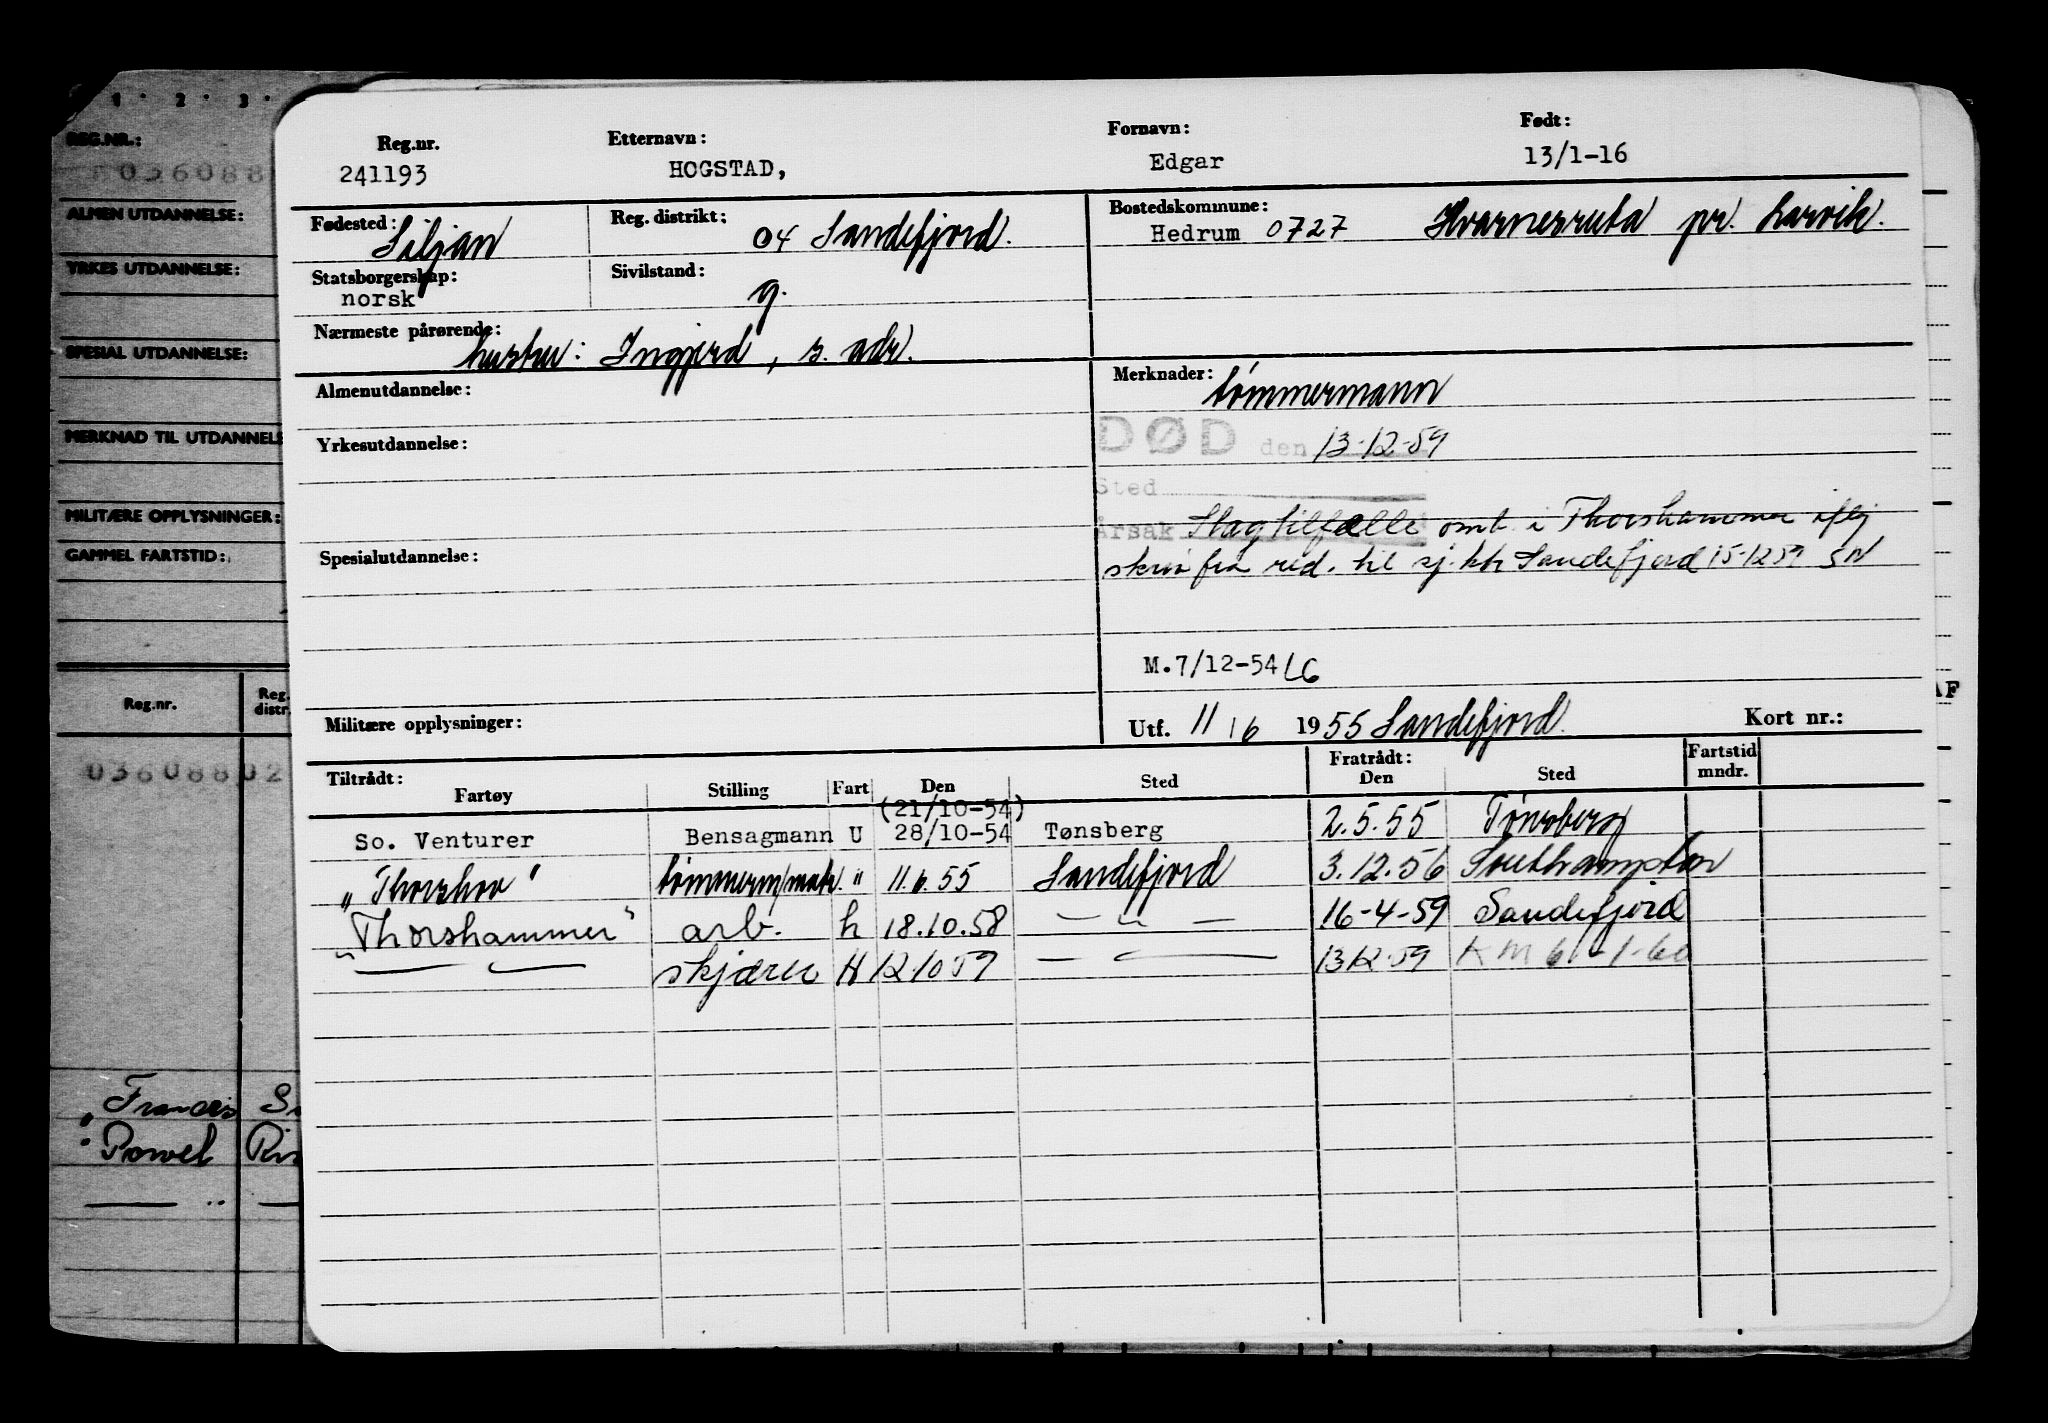 1 · 2 · 3 ·
REG.NR.:
036088
ALMEN UTDANNELSE:
YRKES UTDANNELSE:
SPESIAL UTDANNELSE:
MERKNAD TIL UTDANNELS
MILITÆRE OPPLYSNINGER:
GAMMEL FARTSTID:
Reg.nr. Reg. distr.
036088 02
"Francis
"Powel
— " —
Reg.nr. Etternavn: Fornavn: Født:
241193 HOGSTAD, Edgar 13/1-16
Fødested: Siljan Reg. distrikt: 04 Sandefjord. Bostedskommune: Hedrum 0727 Kvarnesruta pr. Larvik.
Statsborgerskap: norsk Sivilstand: g.
Nærmeste pårørende: hustru: Ingjerd, s. adr.
Almenutdannelse: Merknader: tømmermann
Yrkesutdannelse: DØD den 13-12-59
Sted
Årsak Slagtilfælle omb. i Thorshammer iflg
Spesialutdannelse: skriv fra red. til sj.ktr Sandefjord 15-12 59 SN
M.7/12-54 LG
Militære opplysninger: Utf. 11/6 1955 Sandefjord. Kort nr.:
Tiltrådt: Fratrådt: Fartstid
Fartøy Stilling Fart Den Sted Den Sted mndr.
(21/10-54)
So. Venturer Bensagmann U 28/10-54 Tønsberg 2.5.55 Tønsberg
"Thorshov" tømmerm/matr. " 11.6.55 Sandefjord 3.12.56 Southampton
"Thorshammer" arb. h 18.10.58 — " — 16-4-59 Sandefjord
— " — skjærer H 12 10 59 — " — 13 12-59 KM 6-1-60
AF